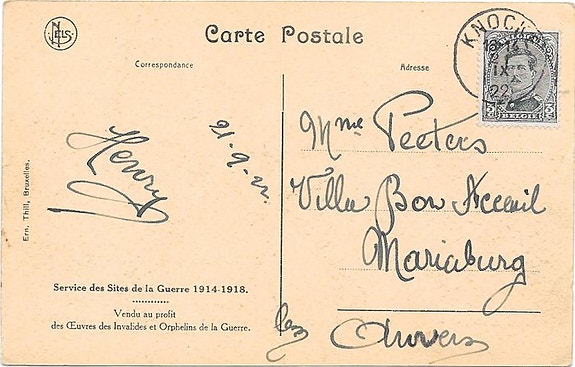 NELS
Carte Postale
Correspondance
Adresse
KNOCKE
IX
22
BELGIE
3 3
Henry
21-9-22
Mme Peeters
Villa Bon Acceuil
Mariaburg
lez Anvers
Ern. Thill, Bruxelles.
Service des Sites de la Guerre 1914-1918.
Vendu au profit
des Œuvres des Invalides et Orphelins de la Guerre.